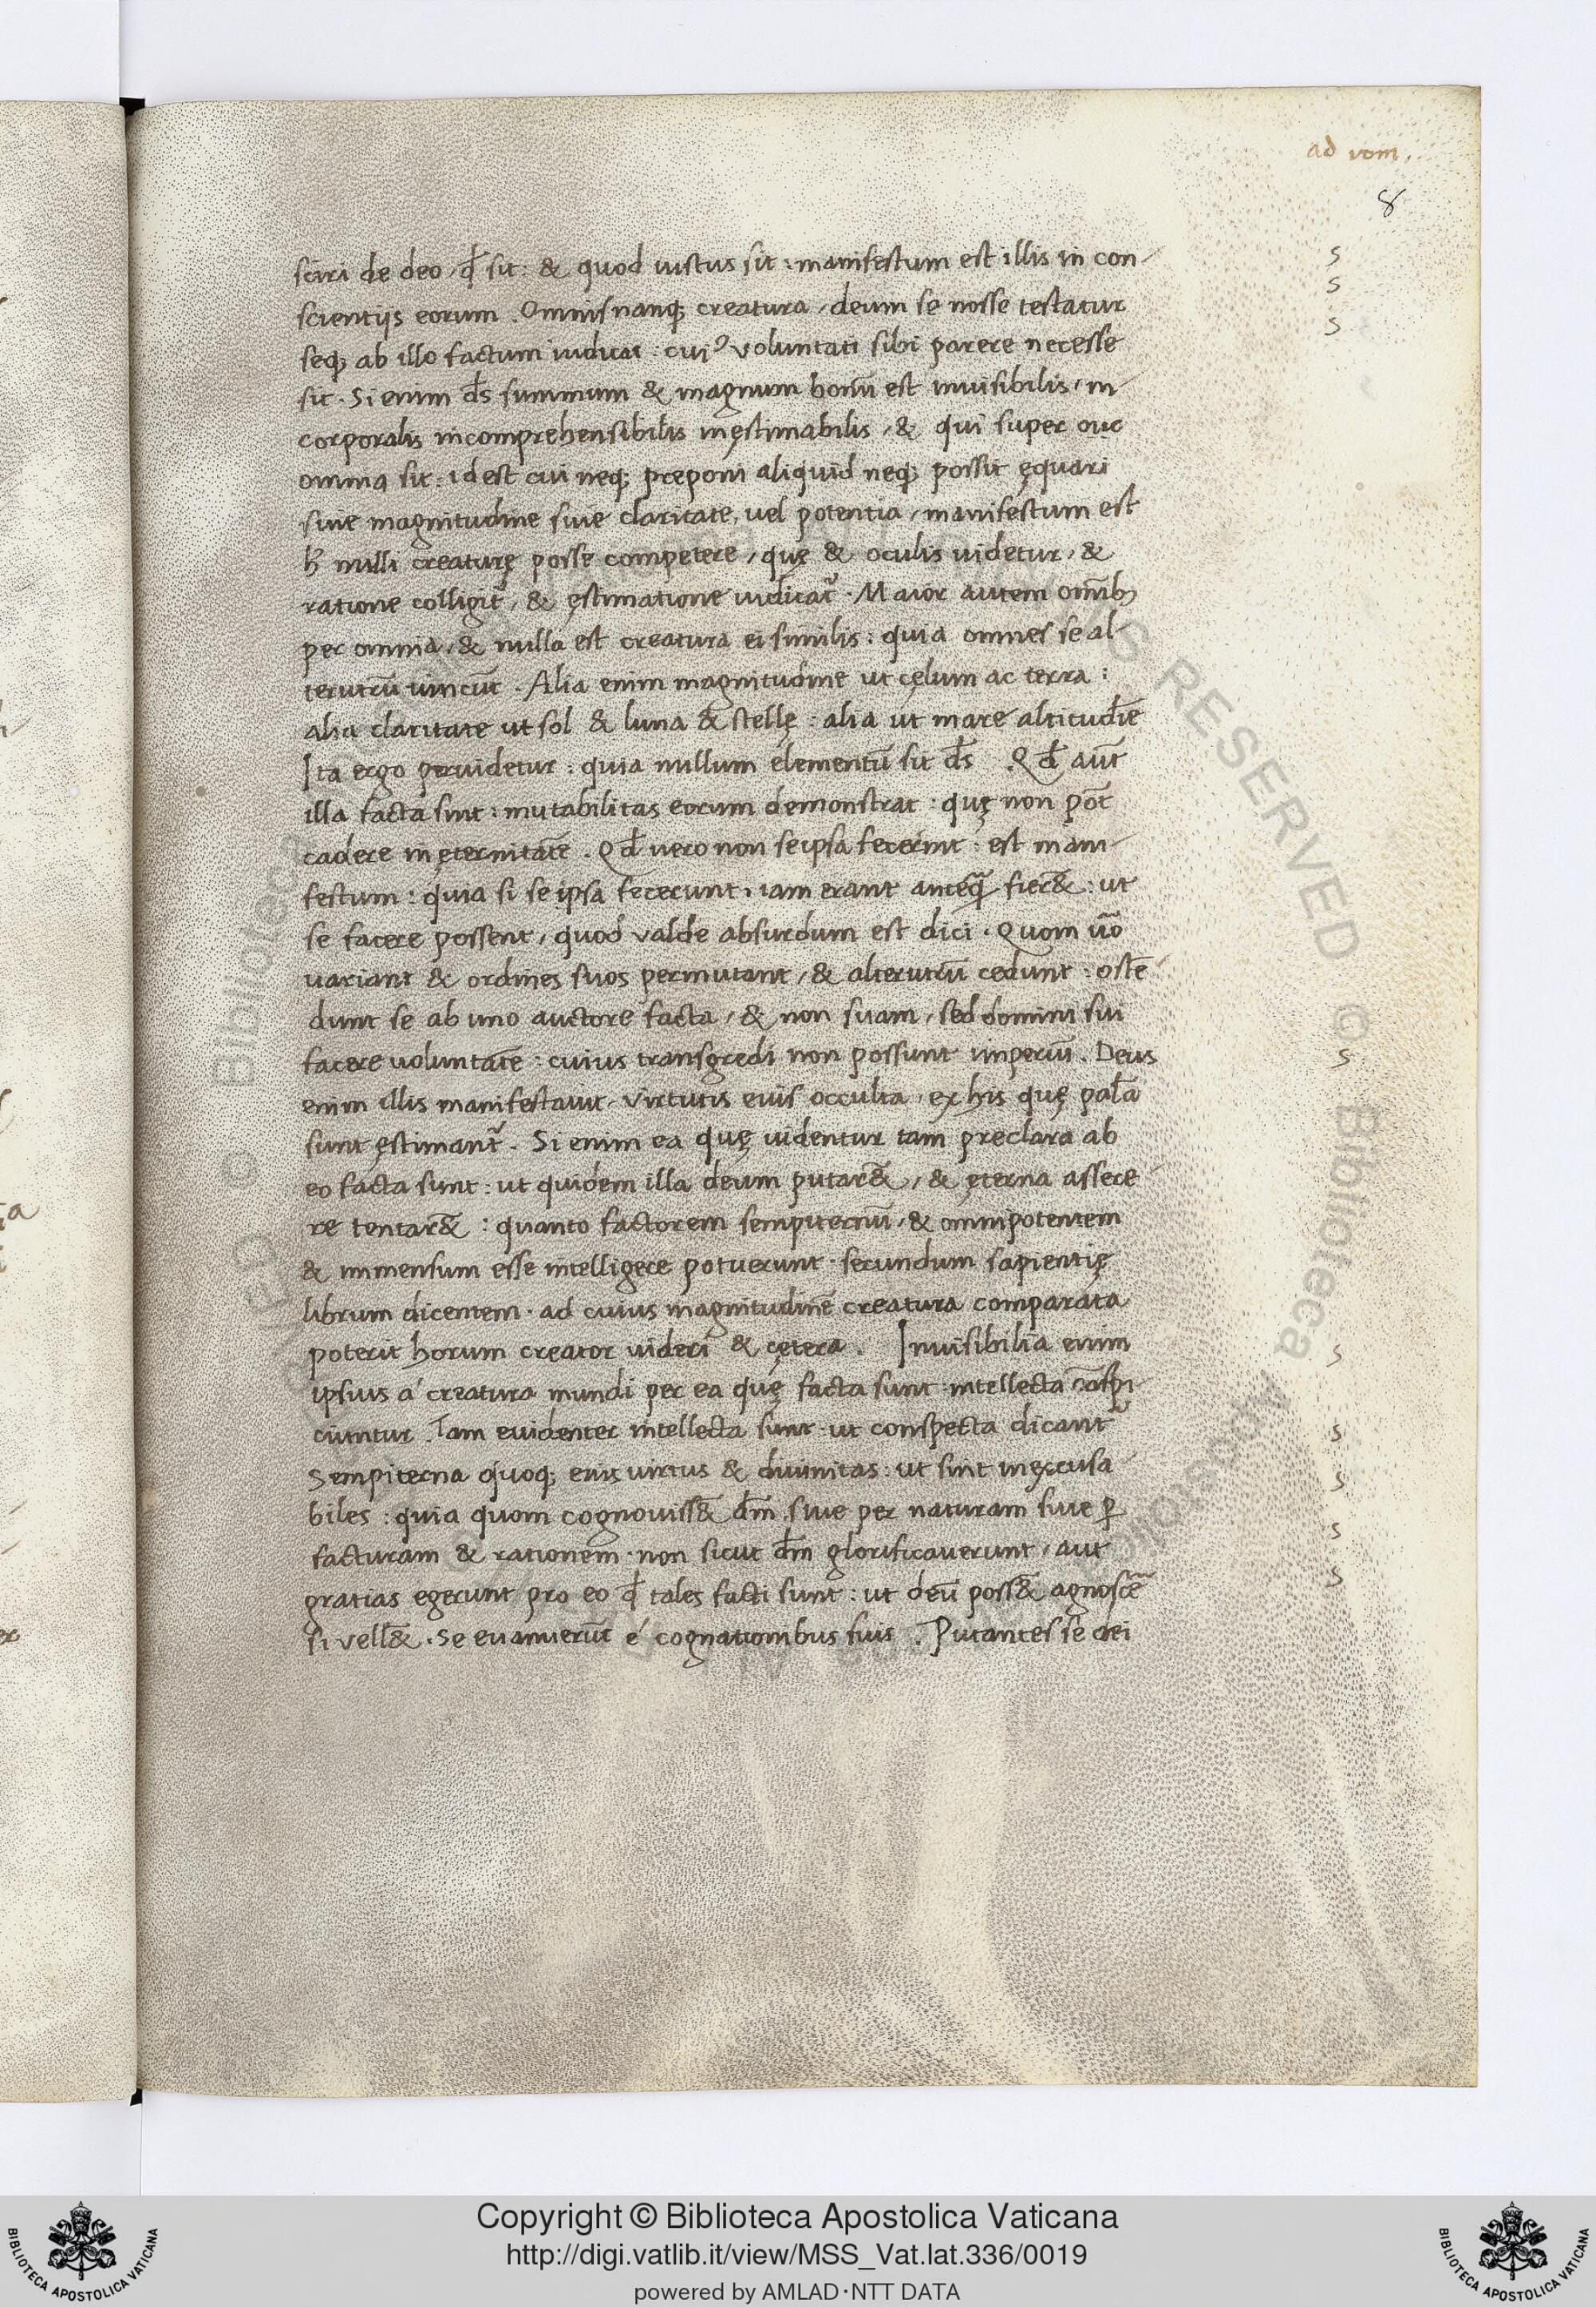 ad rom.
8
sciri de deo, qđ sit: & quod iustus sit: manifestum est illis in con-
scientijs eorum. Omnis nanq; creatura, deum se nosse testatur
seq; ab illo factum iudicat: cuiꝰ voluntati sibi parere necesse
sit. Si enim ds̄ summum & magnum bonū est inuisibilis, in-
corporalis incomprehensibilis inęstimabilis, & qui super
omnia sit: idest cui neq; preponi aliquid neq; possit ęquari
siue magnitudine siue claritate, uel potentia, manifestum est
nulli creaturę posse competere, quę & oculis uidetur, &
ratione colligit̄, & ęstimatione iudicat̄. Maior autem omīb;
per omnia, & nulla est creatura ei similis: quia omnes se al-
terutrū uincūt. Alia enim magnitudine ut cęlum ac terra:
alia claritate ut sol & luna & stellę: alia ut mare altitudīe
Ita ergo peruidetur: quia nullum elementū sit ds̄. Qđ aūt
illa facta sint: mutabilitas eorum demonstrat: quę non pōt
cadere in ęternitatē. Qđ uero non se ipsa fecerint: est mani-
festum: quia si se ipsa fecerunt, iam erant anteq̄ fier&̄: ut
se facere possent, quod valde absurdum est dici. Quom ūo
uariant & ordines suos permutant, & alterutrū cedunt: ostē-
dunt se ab uno auctore facta, & non suam, sed domini sui
facere voluntatē: cuius transgredi non possunt imperiū. Deus
enim illis manifestauit. virtutis eius occulta, ex his quę palā
sunt ęstimant̄. Si enim ea quę uidentur tam preclara ab
eo facta sunt: ut quidem illa deum putar&̄, & ęterna assere-
re tentar&̄: quanto factorem sempiternū, & omnipotentem
& immensum esse intelligere potuerunt. secundum sapientię
librum dicentem. ad cuius magnitudinē creatura comparata
poterit horum creator uideri & cętera. Inuisibilia enim
ipsius á creatura mundi per ea quę facta sunt intellecta cōspi-
ciuntur. Tam euidenter intellecta sunt ut conspecta dicant̄
Sempiterna quoq; eius virtus & diuinitas: ut sint inexcusa-
biles: quia quom cognouiss&̄ dm̄. siue per naturam siue ꝑ
facturam & rationem. non sicut dm̄ glorificauerunt, aut
gratias egerunt pro eo qđ tales facti sunt: ut deū poss&̄ agnoscē
si vell&̄. Se euanuerūt é cognationibus suis. Putantes se dei
s
s
s
s
s
s
s
s
s
Copyright © Biblioteca Apostolica Vaticana
http://digi.vatlib.it/view/MSS_Vat.lat.336/0019
powered by AMLAD·NTT DATA
BIBLIOTECA APOSTOLICA VATICANA
BIBLIOTECA APOSTOLICA VATICANA